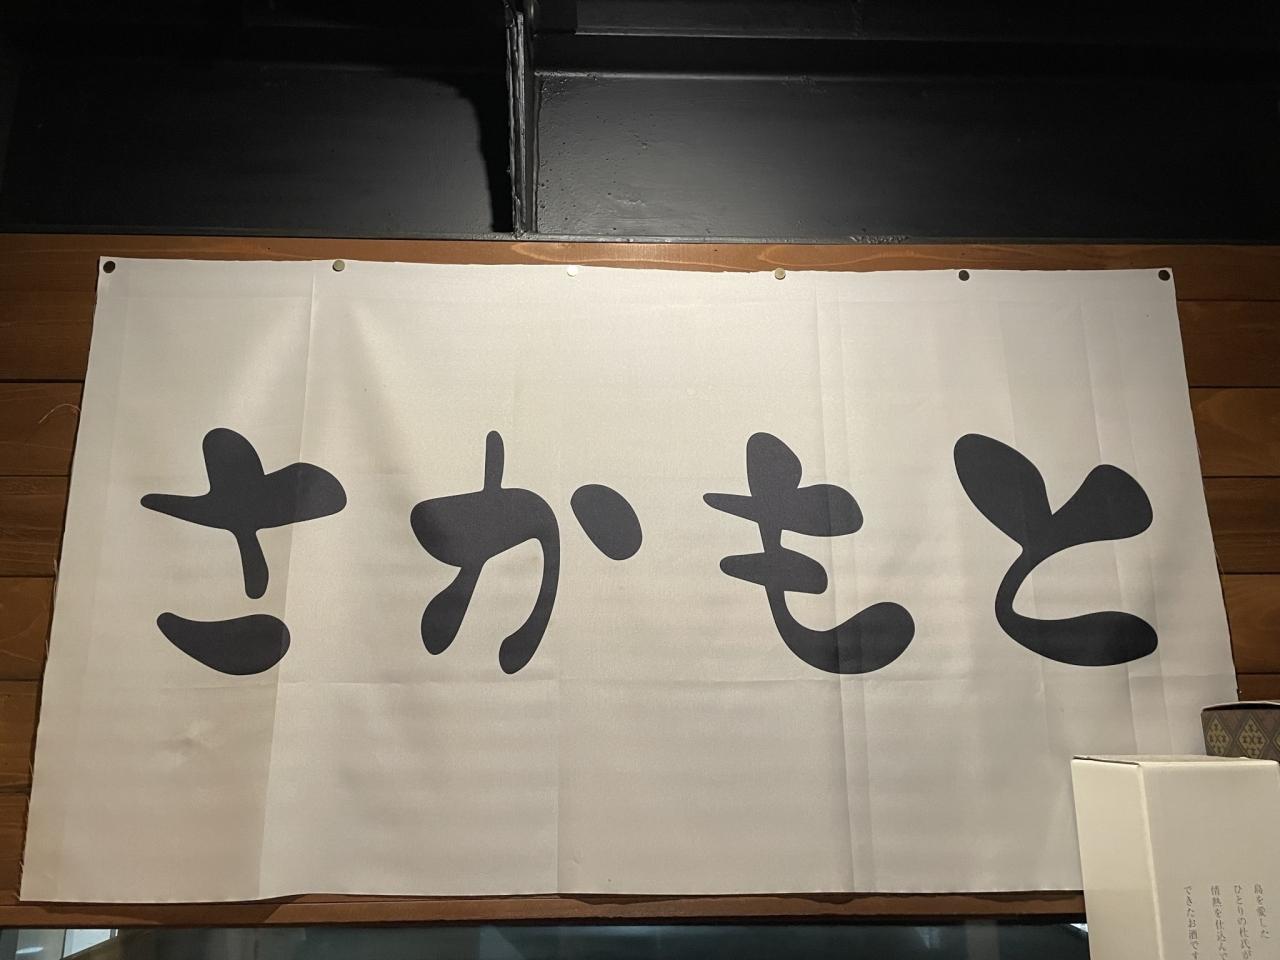 さかもと
島を愛した
ひとりの杜氏が
情熱を仕込んで
できたお酒です